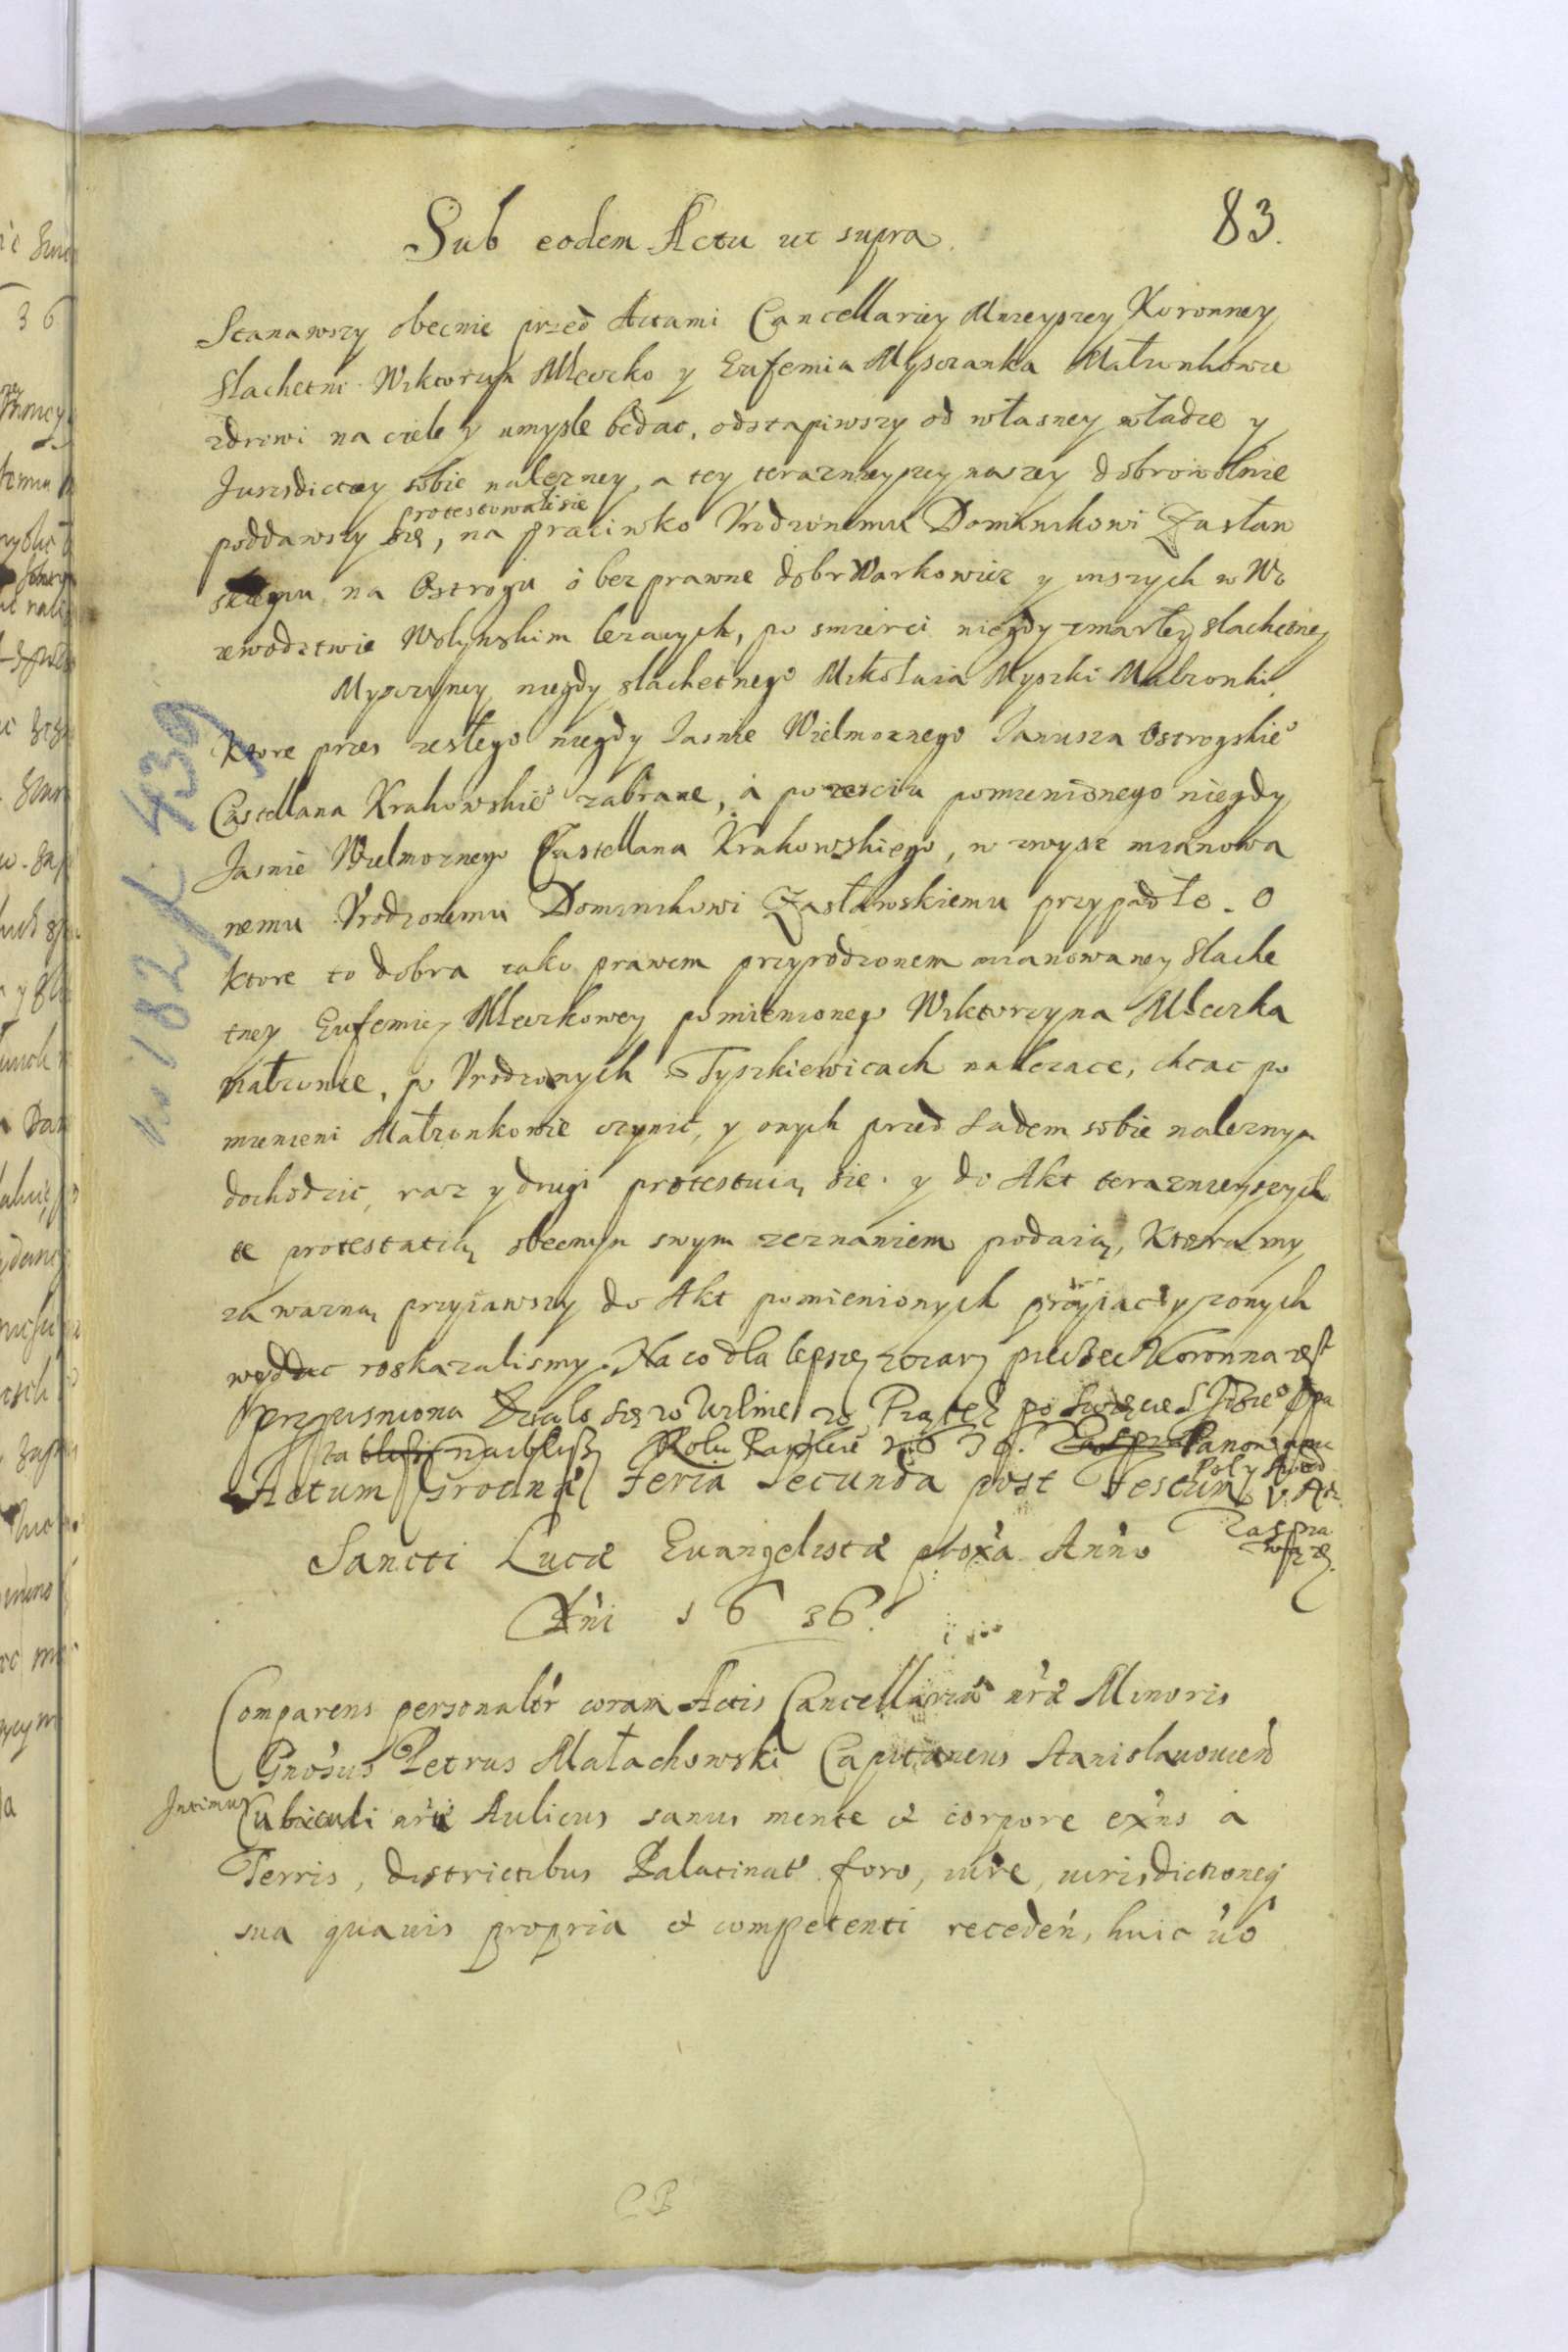 83.
Sub eodem Actu ut supra.
Stanawszy obecnie przed Actami Cancellariey Mnieyszey Koronney
Slachetni Wiktoryn Mleczko y Eufemia Myszczanka Małzonkowie
zdrowi na ciele y umysle bedac, odstapiwszy od własney władze y
Jurisdictiey sobie nalezney, a tey teraznieyszey naszey dobrowolnie
protestowali sie
poddawszy się, na prziciwko Urodzonemu Dominikowi Zasław
skiemu na Ostrogu o bezprawne dobr Warkowicz y inszych w Wo
iewodztwie Wołynskim lezacych, po smierci niegdy zmarłey slachetney
Myszczyney niegdy slachetnego Mikołaia Myszki Małzonki
ktore przes zeszłego niegdy Jasnie Wielmoznego Janusza Ostrogskieo
Castellana Krakowskieo zabrane, á po zesciu pomienionego niegdy
Jasnie Wielmoznego Castellana Krakowskiego, w zwysz mianowa
nemu Urodzonemu Dominikowi Zasławskiemu przypadło. O
ktore to dobra iako prawem przyrodzonem mianowaney slache
tney Eufemiey Mleczkowey pomienionego Wiktorzyna Mleczka
małzonce, po Urodzonych Tyszkiewicach nalezace, chcac po
mienieni Małzonkowie czynic, y onych przed sadem sobie naleznym
dochodzic, raz y drugi protestuią sie. y do Akt teraznieyszych
te protestatią obecnym swym zeznaniem podaią, Ktora my
za wazną przyiawszy do Akt pomienionych przyiąc y zonych
roskazalismy. Na co dla lepszey wiary pieczęć Koronna iest
przycisniona Działo się w Wilnie w Piątek po Swięcie S
naibliszy Roku Panskie 1636. Panowania
Pol y Szwed
Actum Grodnæ Feria Secunda post Festum
Zaspra
wą
Sancti Lucæ Evangelistæ proxa Anno
Dni 1636.
Comparens personalr coram Actis Cancellariæ nræ Minoris
Gnosus Petrus Małachowski Capitaneus Stanislauouien
Intimus
Cubiculi nri Aulicus sanus mente et corpore exns á
Terris, districtibus Palatinat foro, iure, iurisdictioneq
sua quauis propria et competenti receden, huic vo
No 182 k 439